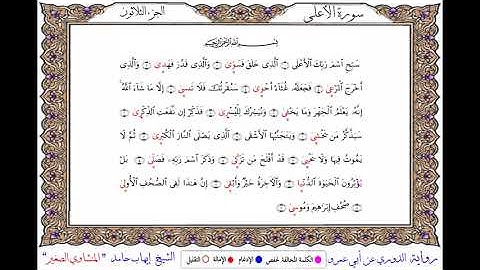 سورة الأعلى
الجزء الثلاثون
بسم الله الرحمن الرحيم
سَبِّحِ ٱسْمَ رَبِّكَ ٱلْأَعْلَى ۝ ٱلَّذِى خَلَقَ فَسَوَّىٰ ۝ وَٱلَّذِى قَدَّرَ فَهَدَىٰ ۝ وَٱلَّذِى
أَخْرَجَ ٱلْمَرْعَىٰ ۝ فَجَعَلَهُۥ غُثَآءً أَحْوَىٰ ۝ سَنُقْرِئُكَ فَلَا تَنسَىٰ ۝ إِلَّا مَا شَآءَ ٱللَّهُ
إِنَّهُۥ يَعْلَمُ ٱلْجَهْرَ وَمَا يَخْفَىٰ ۝ وَنُيَسِّرُكَ لِلْيُسْرَىٰ ۝ فَذَكِّرْ إِن نَّفَعَتِ ٱلذِّكْرَىٰ ۝
سَيَذَّكَّرُ مَن يَخْشَىٰ ۝ وَيَتَجَنَّبُهَا ٱلْأَشْقَى ۝ ٱلَّذِى يَصْلَى ٱلنَّارَ ٱلْكُبْرَىٰ ۝ ثُمَّ لَا
يَمُوتُ فِيهَا وَلَا يَحْيَىٰ ۝ قَدْ أَفْلَحَ مَن تَزَكَّىٰ ۝ وَذَكَرَ ٱسْمَ رَبِّهِۦ فَصَلَّىٰ ۝ بَلْ
يُؤْثِرُونَ ٱلْحَيَوٰةَ ٱلدُّنْيَا ۝ وَٱلْآخِرَةُ خَيْرٌ وَأَبْقَىٰ ۝ إِنَّ هَٰذَا لَفِى ٱلصُّحُفِ ٱلْأُولَىٰ
۝ صُحُفِ إِبْرَٰهِيمَ وَمُوسَىٰ ۝
رواية الدوري عن أبي عمرو
الكلمة المخالفة لحفص
الإدغام
الإمالة
التقليل
الشيخ إيهاب حامد "المنشاوي الصغير"